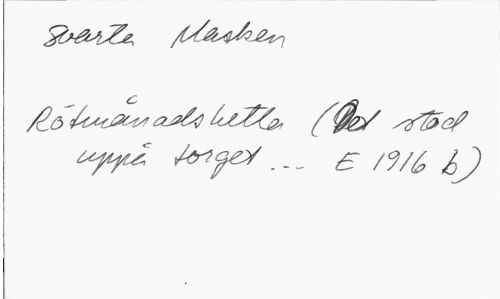 Svarta Masken
Rötmånadshetta (Det stod
uppå torget ... E 1916 b)